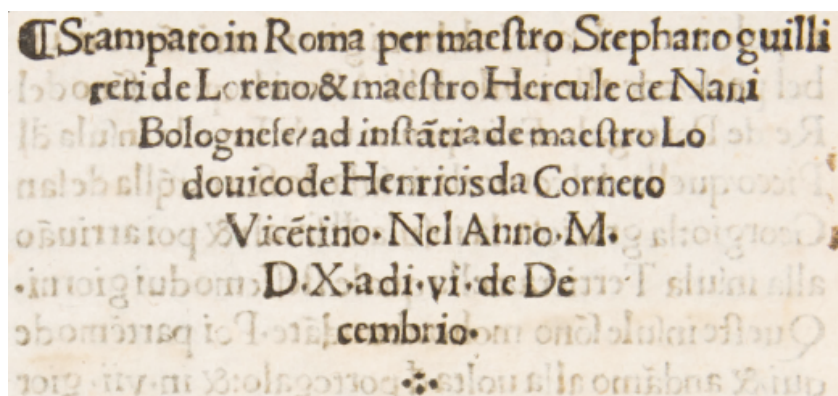 ¶Stampato in Roma per maestro Stephano guilli
reti de Loreno/& maestro Hercule de Nani
Bolognese/ad instãtia de maestro Lo
douico de Henricis da Corneto
Vicẽtino. Nel Anno. M.
D. X. a di. vi. de De
cembrio.